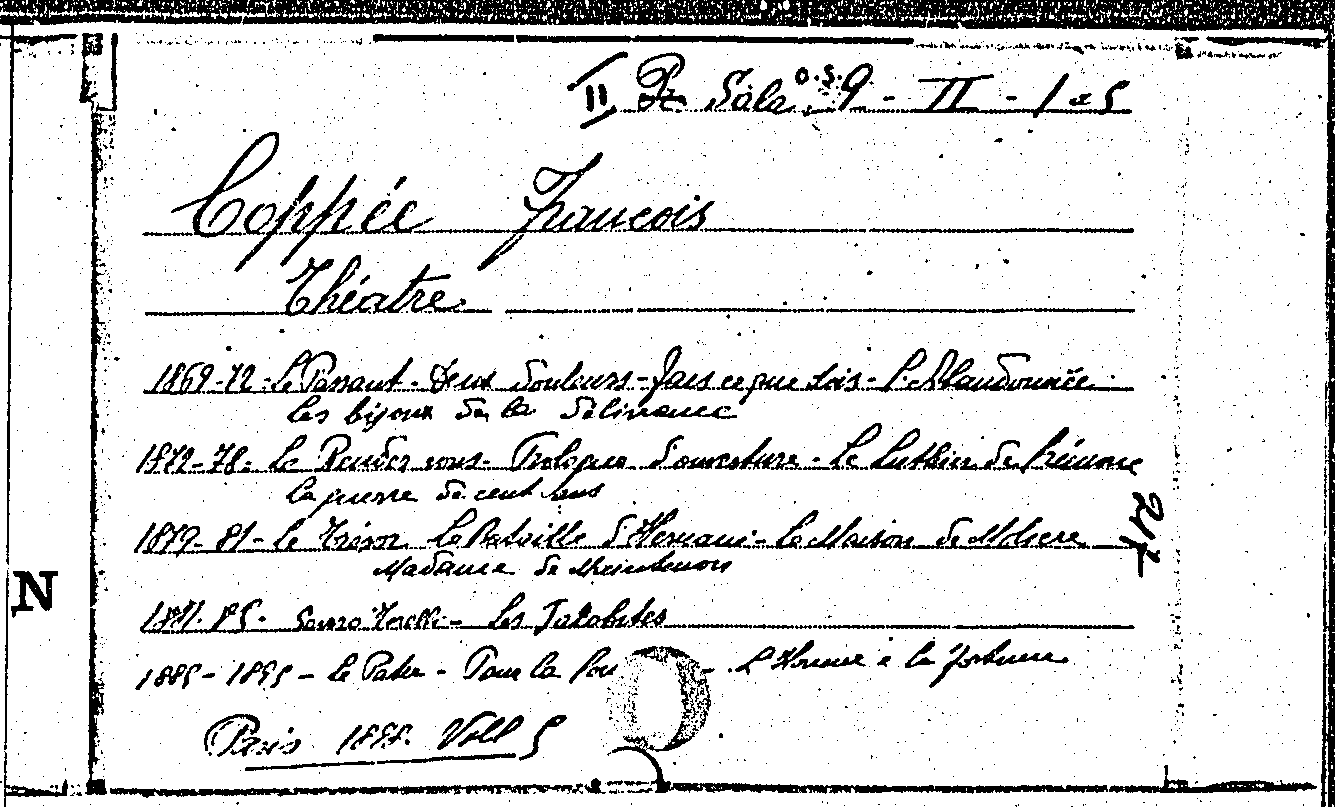 II Pr Sala O.S. 9 - II - 1 a 5
Coppée François
Théatre
1869-72 - Le Passant - Deux Douleurs - Fais ce que dois - L'Abandonnée
Les bijoux de la délivrance
1872-78 - Le Rendez vous - Prologue d'ouverture - Le Luthier de Crémone
La guerre de cent ans
1879-81 - Le Trésor La Bataille d'Hernani - La Maison de Moliere
Madame de Maintenon
1881-85 - Severo Torelli - Les Jacobites
1885-1895 - Le Pater - Pour la Cou - L'Homme a la fortune
Paris 1898. Voll 5
N